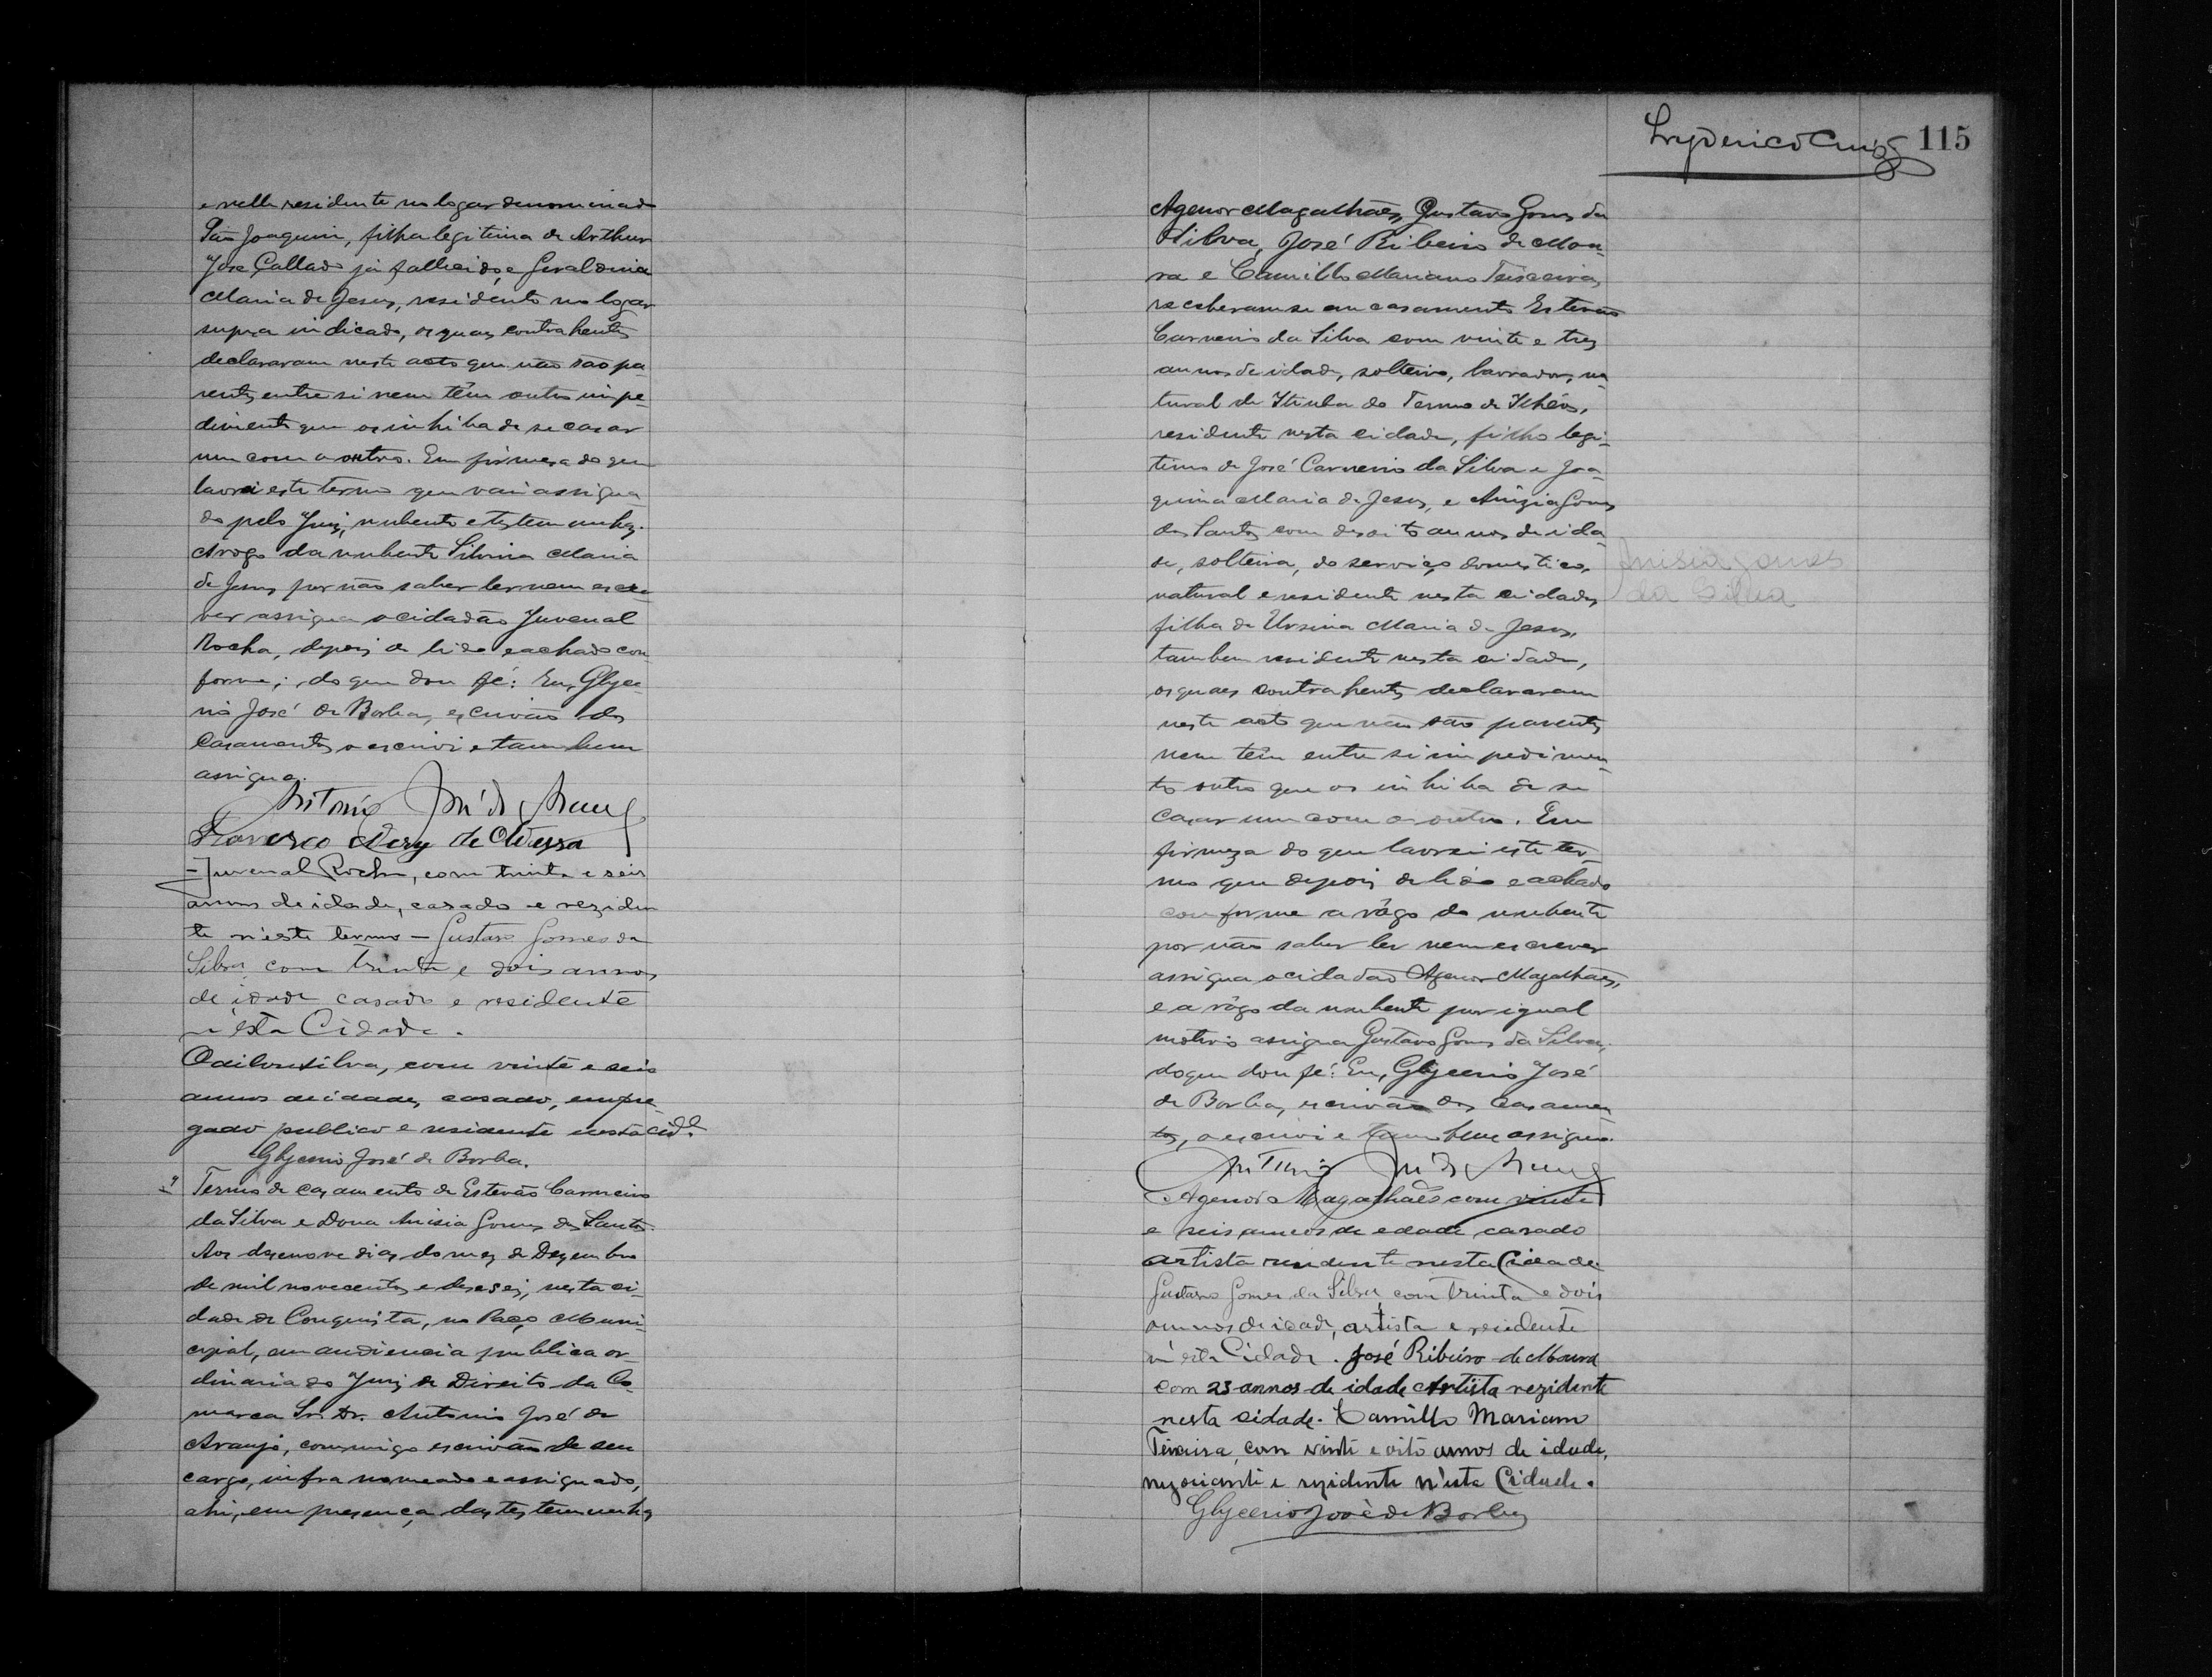 e nelle residente no logar denominado
São Joaquim, filha legitima de Arthur
José Callado já fallecido, e Geraldina
Maria de Jesus, residente no logar
supra indicado, os quaes contrahentes
declararam neste acto que não são pa-
rentes entre si nem têm outro impe-
dimento que os inhiba de se casar
um com o outro. Em firmeza do que
lavrei este termo que vai assigna
do pelo Juiz, nubente e testemunhas.
Arogo da nubente Silvina Maria
de Jesus por não saber ler nem escre-
ver assigna o cidadão Juvenal
Rocha, depois de lido e achado con-
forme; do que dou fé: Eu, Glyce-
rio José de Borba, escrivão dos
Casamentos o escrevi e tambem
assigno.
Antonio José de Araujo
Francisco Nery de
Juvenal Rocha, com trinta e seis
annos de idade, casado e reziden
te n'este termo — Gustavo Gomes da
Silva, com trinta e dois annos
de idade casado e residente
n'esta Cidade.
Odilon Silva, com vinte e seis
annos de idade, casado, empre-
gado publico e residente nesta cid.e
Glycerio José de Borba.
Termo de casamento de Estevão Carneiro
da Silva e Dona Anisia Gomes dos Santos.
Aos desenove dias do mez de Dezembro
de mil novecentos e deseseis, nesta ci-
dade de Conquista, no Paço Muni-
cipal, em audiencia publica or-
dinaria do Juiz de Direito da Co-
marca Sr. Dr. Antonio José de
Araujo, commigo escrivão de seu
cargo, infra nomeado e assignado,
ahi, em presença das testemunhas
115
Agenor Magalhães, Gustavo Gomes da
Silva, José Ribeiro de Mou-
ra e Camillo Mariano Teixeira,
receberam-se em casamento Estevão
Carneiro da Silva com vinte e tres
annos de idade, solteiro, lavrador, na-
tural de Itiuba do Termo de Ilhéos,
residente nesta cidade, filho legi-
timo de José Carneiro da Silva e Joa-
quina Maria de Jesus, e Anizia Gomes
dos Santos com desoito annos de ida-
de, solteira, do serviço domestico,
natural e residente nesta cidade,
filha de Ursina Maria de Jesus,
tambem residente nesta cidade,
os quaes contrahentes declararam
neste acto que não são parentes
nem têm entre si impedimen-
to outro que os inhiba de se
casar um com o outro. Em
firmeza do que lavrei este ter-
mo que depois de lido e achado
conforme a rôgo do nubente
por não saber ler nem escrever
assigna o cidadão Agenor Magalhães,
e a rôgo da nubente por igual
motivo assigna Gustavo Gomes da Silva,
do que dou fé: Eu, Glycerio José
de Borba, escrivão dos Casamen-
tos, o escrevi e tambem assigno.
Antonio José de Araujo
Agenor Magalhães com vinte
e seis annos de edade casado
artista residente nesta Cidade
Gustavo Gomes da Silva, com trinta e dois
annos de idade, artista e residente
n'esta Cidade. José Ribeiro de Moura
com 23 annos de idade Artista rezidente
nesta cidade. Camillo Mariano
Teixeira, com vinte e oito annos de idade,
negociante e rezidente n'esta Cidade.
Glycerio José de Borba
Anisia gomes
da Silva